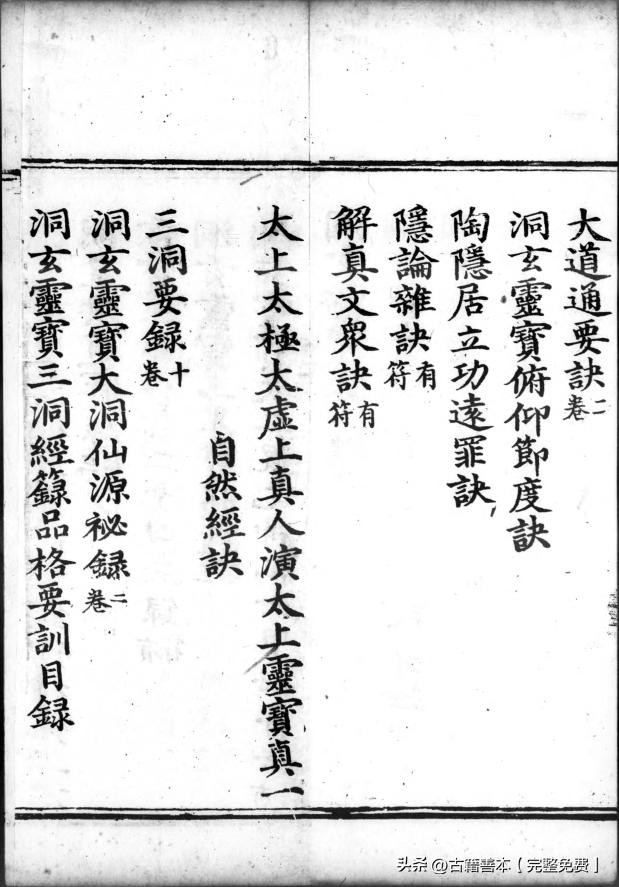 大道通要訣二卷
洞玄靈寶俯仰節度訣
陶隱居立功遠罪訣
隱論雜訣有符
解真文衆訣有符
太上太極太虛上真人演太上靈寶真一
自然經訣
三洞要録十卷
洞玄靈寶大洞仙源祕録二卷
洞玄靈寶三洞經籙品格要訓目録
头条 @古籍善本【完整免费】